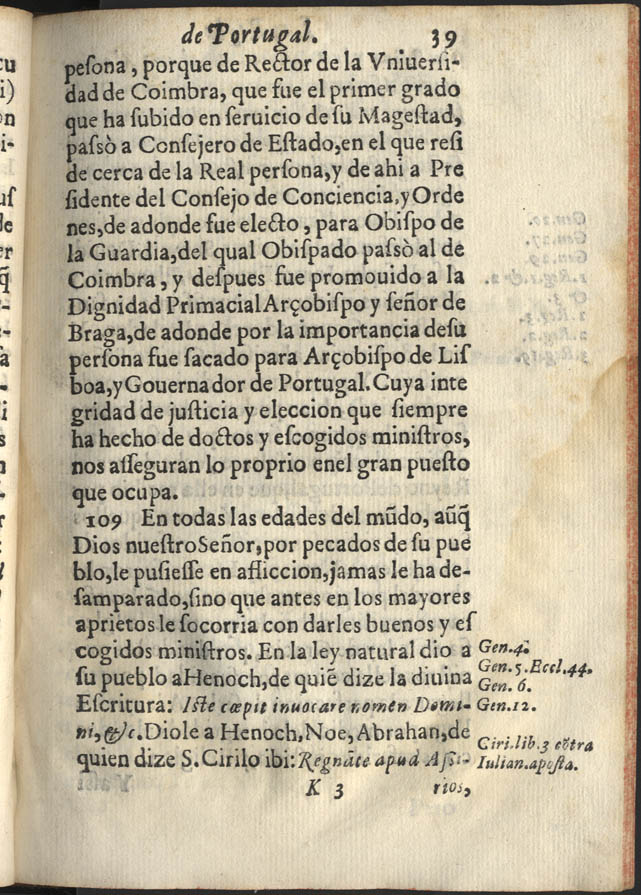 de Portugal. 39
peſona, porque de Rector de la Vniuerſi-
dad de Coimbra, que fue el primer grado
que ha ſubido en ſeruicio de ſu Mageſtad,
paſsò a Conſejero de Eſtado,en el que reſi
de cerca de la Real perſona,y de ahi a Pre
ſidente del Conſejo de Conciencia,y Orde
nes,de adonde fue electo, para Obiſpo de
la Guardia,del qual Obiſpado paſsò al de
Coimbra, y deſpues fue promouido a la
Dignidad Primacial Arçobiſpo y ſeñor de
Braga,de adonde por la importancia deſu
perſona fue ſacado para Arçobiſpo de Liſ
boa,y Gouernador de Portugal. Cuya inte
gridad de juſticia y eleccion que ſiempre
ha hecho de doctos y eſcogidos miniſtros,
nos aſſeguran lo proprio enel gran pueſto
que ocupa.
109 En todas las edades del mũdo, aũq̃
Dios nueſtro Señor,por pecados de ſu pue
blo,le puſieſſe en afliccion,jamas le ha de-
ſamparado,ſino que antes en los mayores
aprietos le ſocorria con darles buenos y eſ
cogidos miniſtros. En la ley natural dio a
ſu pueblo a Henoch,de quiẽ dize la diuina
Eſcritura: Iſte cœpit inuocare nomen Domi-
ni,&c. Diole a Henoch, Noe, Abrahan,de
quien dize S. Cirilo ibi: Regnãte apud Aſſi-
K 3 rios,
Gen.4.
Gen.5.Eccl.44.
Gen. 6.
Gen.12.
Ciri.lib.3 cõtra
Iulian.apoſta.